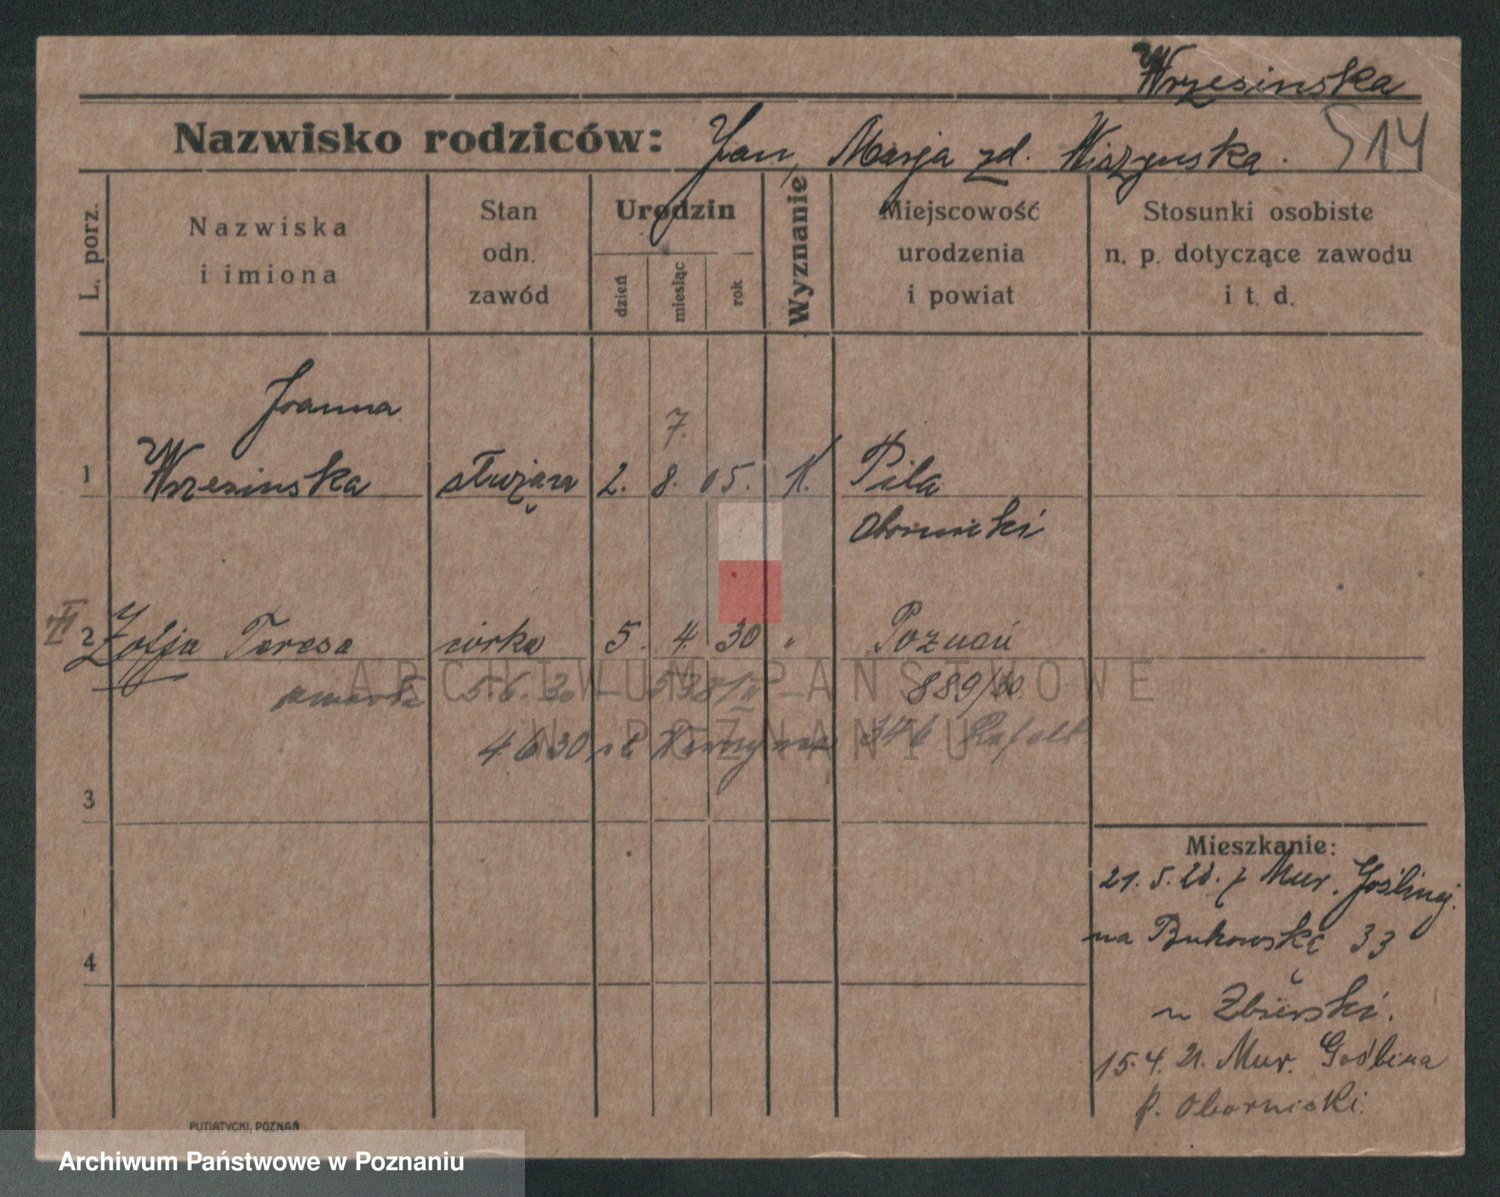 Wrzesinska
Nazwisko rodziców: Jan, Marja zd. Wiszynska. 514
L. porz.
Nazwiska
i imiona
Stan
odn.
zawód
Urodzin
dzień
miesiąc
rok
Wyznanie
Miejscowość
urodzenia
i powiat
Stosunki osobiste
n. p. dotyczące zawodu
i t. d.
Joanna
7.
1 Wrzesinska służąca 2. 8. 05. K. Piła
Obornicki
II 2 Zofja Teresa córka 5. 4. 30 " Poznań
ARCHIWUM PAŃSTWOWE
5.6.30 889/30.
W POZNANIU
4 6 30 346
3
Mieszkanie:
21. 5. z Mur. Goślinej.
na Bukowską 33
4
u Zbierski.
15. 4. 21. Mur. Goślina
p. Obornicki.
PUTIATYCKI, POZNAŃ
Archiwum Państwowe w Poznaniu